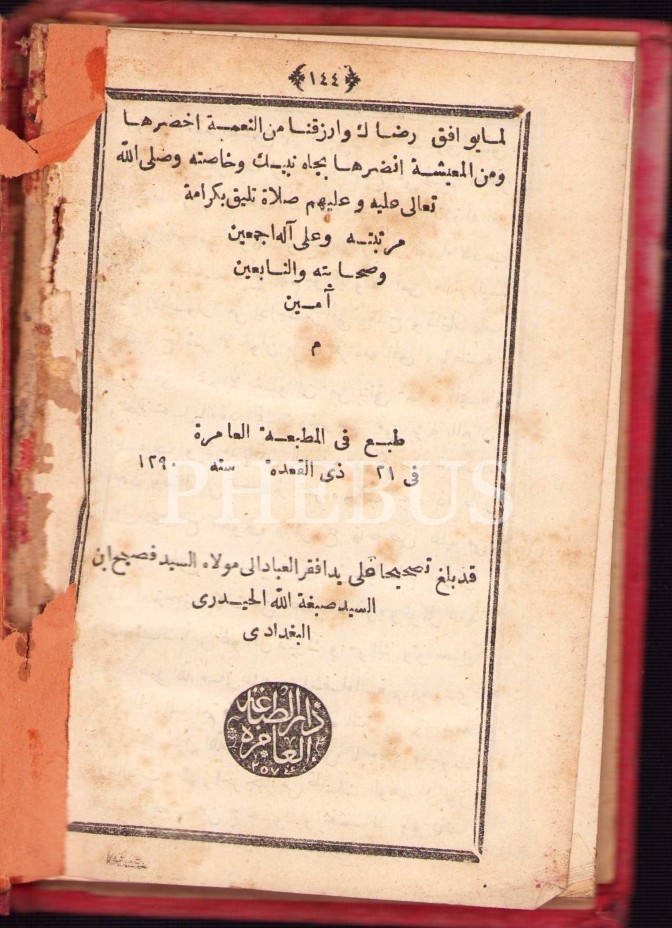 ١٤٤
لما يوافق رضاك وارزقنا من النعمة اخضرها
ومن المعيشة انضرها بجاه نبيك وخاصته وصلى الله
تعالى عليه وعليهم صلاة تليق بكرامة
مرتبته وعلى آله اجمعين
وصحابته والتابعين
آمين
م
طبع فى المطبعة العامرة
فى ٢١ ذى القعدة سنه ١٢٩٠
قد بلغ تصحيحا على يد افقر العباد الى مولاه السيد فصيح ابن
السيد صبغة الله الحيدرى
البغدادى
دار الطباعة
العامره
PHEBUS